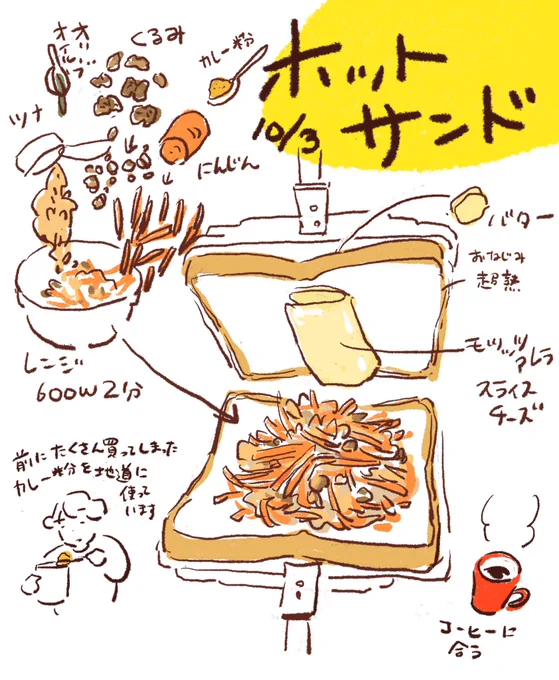 ホット
サンド
10/3
オリーブ
オイル
くるみ
カレー粉
ツナ
にんじん
バター
おなじみ
超熟
モッツァレラ
スライス
チーズ
レンジ
600W 2分
前にたくさん買ってしまった
カレー粉を地道に
使って
います
コーヒーに
合う